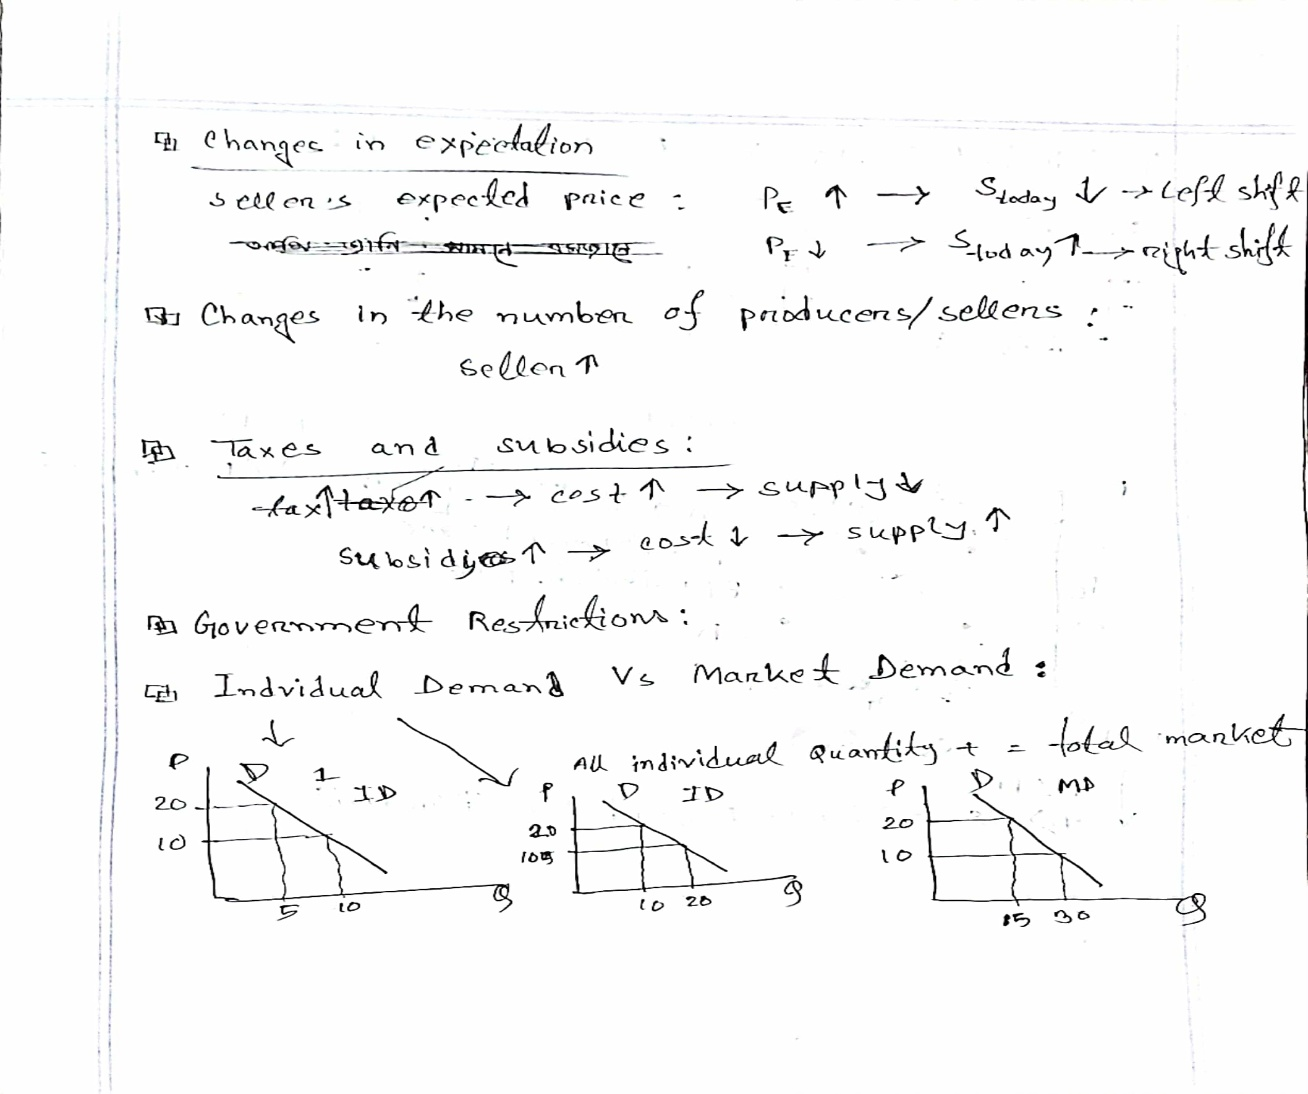 Changes in expectation :
seller's expected price : PE ↑ → Stoday ↓ → Left shift
PE ↓ → Stoday ↑ → right shift
Changes in the number of producers/sellers :
seller ↑
Taxes and subsidies :
tax↑ → cost ↑ → supply ↓
subsidy ↑ → cost ↓ → supply ↑
Government Restrictions :
Indvidual Demand Vs Market Demand :
↓
All individual quantity + = total market
P D 1 ID
20
10
5 10 Q
P D ID
20
10
10 20 Q
P D MD
20
10
15 30 Q